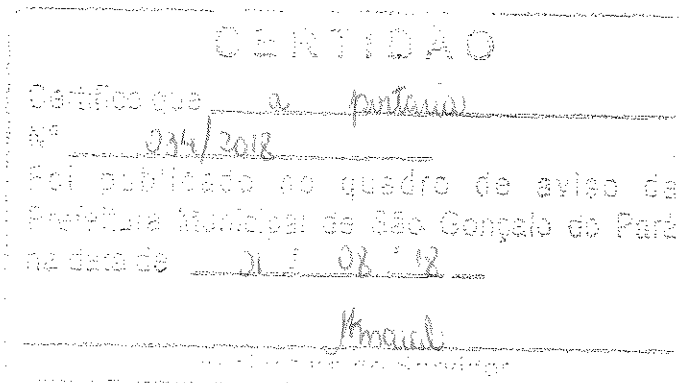 CERTIDÃO
Certifico que a portaria
Nº 034/2018
Foi publicado no quadro de aviso da
Prefeitura Municipal de São Gonçalo do Pará
na data de 01 / 08 / 18
do Servidor